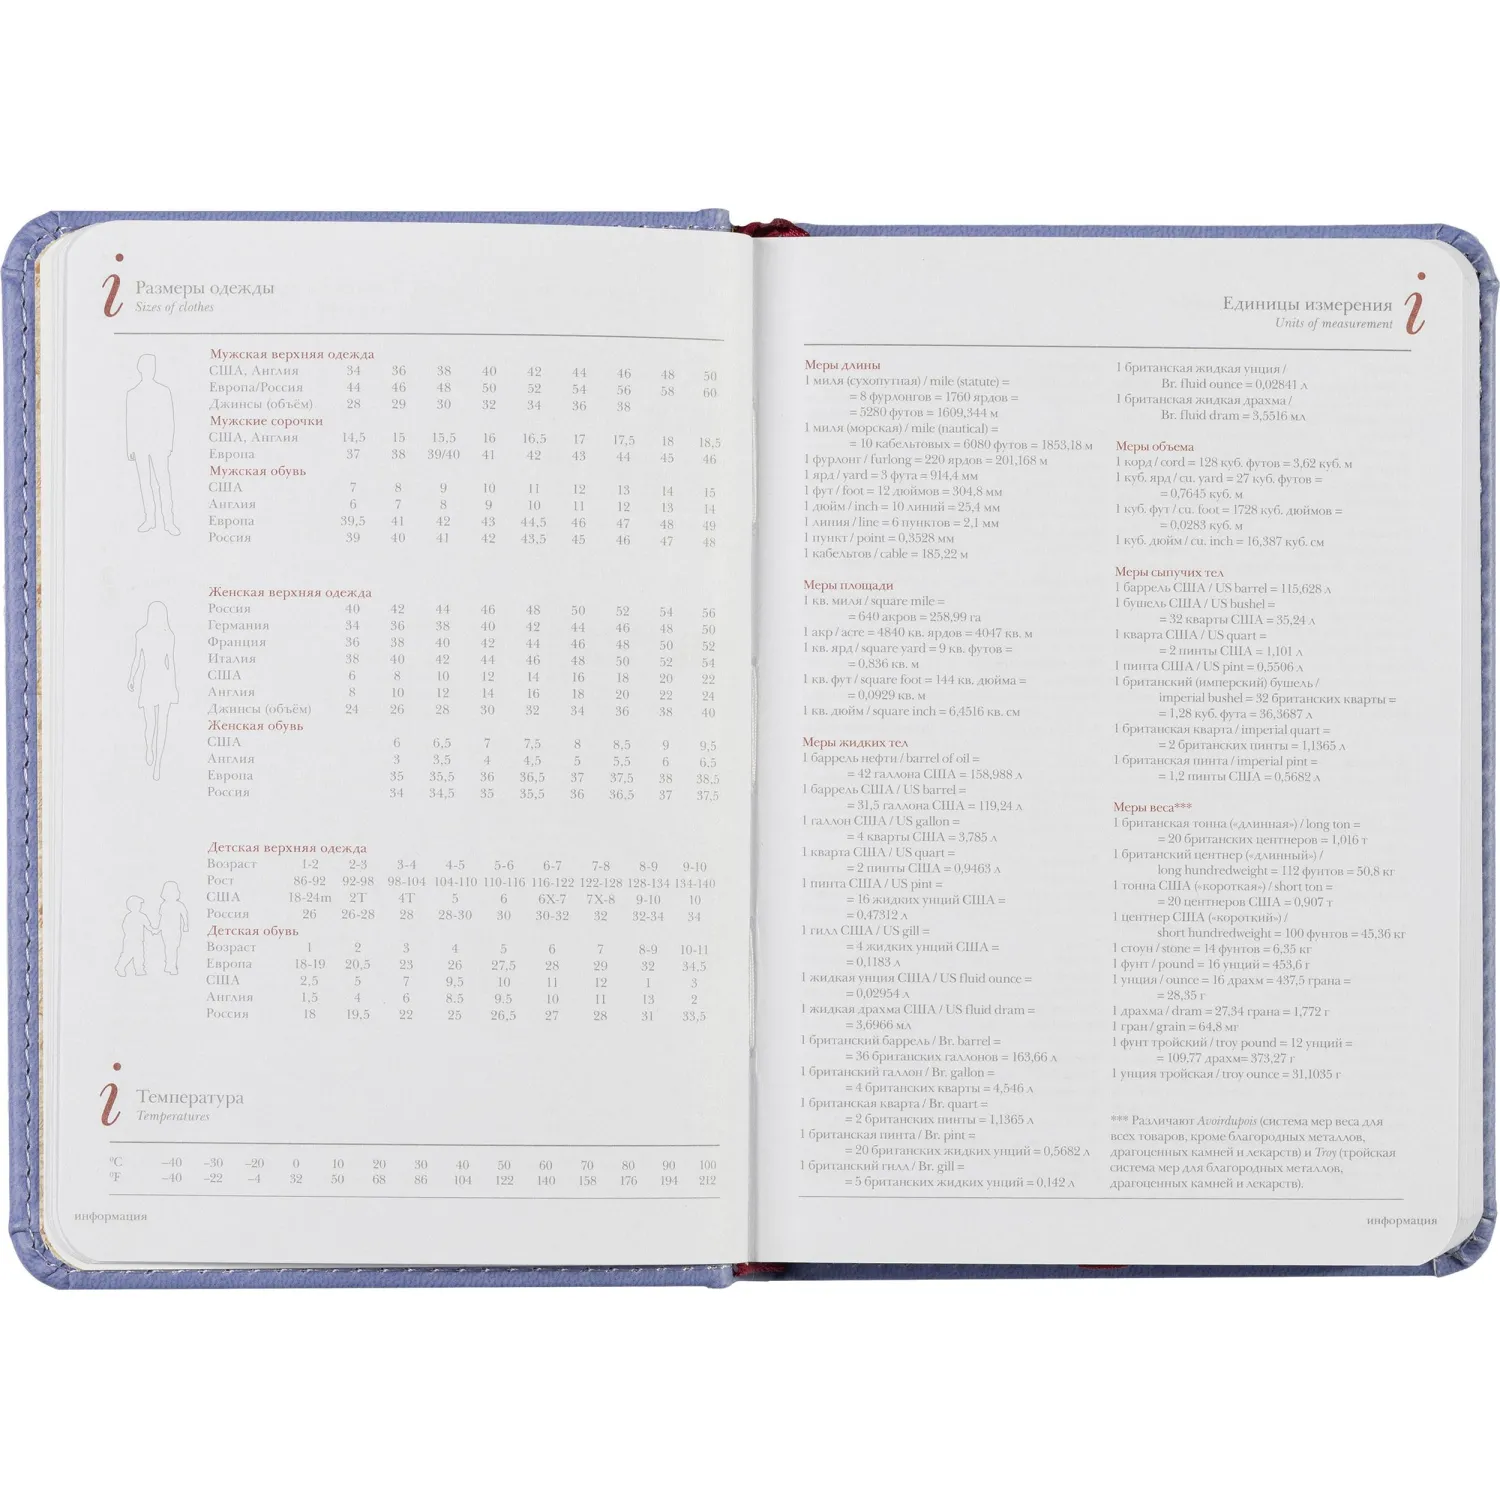 i Размеры одежды
Sizes of clothes
Мужская верхняя одежда
США, Англия 34 36 38 40 42 44 46 48 50
Европа/Россия 44 46 48 50 52 54 56 58 60
Джинсы (объём) 28 29 30 32 34 36 38
Мужские сорочки
США, Англия 14,5 15 15,5 16 16,5 17 17,5 18 18,5
Европа 37 38 39/40 41 42 43 44 45 46
Мужская обувь
США 7 8 9 10 11 12 13 14 15
Англия 6 7 8 9 10 11 12 13 14
Европа 39,5 41 42 43 44,5 46 47 48 49
Россия 39 40 41 42 43,5 45 46 47 48
Женская верхняя одежда
Россия 40 42 44 46 48 50 52 54 56
Германия 34 36 38 40 42 44 46 48 50
Франция 36 38 40 42 44 46 48 50 52
Италия 38 40 42 44 46 48 50 52 54
США 6 8 10 12 14 16 18 20 22
Англия 8 10 12 14 16 18 20 22 24
Джинсы (объём) 24 26 28 30 32 34 36 38 40
Женская обувь
США 6 6,5 7 7,5 8 8,5 9 9,5
Англия 3 3,5 4 4,5 5 5,5 6 6,5
Европа 35 35,5 36 36,5 37 37,5 38 38,5
Россия 34 34,5 35 35,5 36 36,5 37 37,5
Детская верхняя одежда
Возраст 1-2 2-3 3-4 4-5 5-6 6-7 7-8 8-9 9-10
Рост 86-92 92-98 98-104 104-110 110-116 116-122 122-128 128-134 134-140
США 18-24m 2T 4T 5 6 6X-7 7X-8 9-10 10
Россия 26 26-28 28 28-30 30 30-32 32 32-34 34
Детская обувь
Возраст 1 2 3 4 5 6 7 8-9 10-11
Европа 18-19 20,5 23 26 27,5 28 29 32 34,5
США 2,5 5 7 9,5 10 11 12 1 3
Англия 1,5 4 6 8.5 9.5 10 11 13 2
Россия 18 19,5 22 25 26,5 27 28 31 33,5
i Температура
Temperatures
°C –40 –30 –20 0 10 20 30 40 50 60 70 80 90 100
°F –40 –22 –4 32 50 68 86 104 122 140 158 176 194 212
информация
Единицы измерения i
Units of measurement
Меры длины
1 миля (сухопутная) / mile (statute) =
= 8 фурлонгов = 1760 ярдов =
= 5280 футов = 1609,344 м
1 миля (морская) / mile (nautical) =
= 10 кабельтовых = 6080 футов = 1853,18 м
1 фурлонг / furlong = 220 ярдов = 201,168 м
1 ярд / yard = 3 фута = 914,4 мм
1 фут / foot = 12 дюймов = 304,8 мм
1 дюйм / inch = 10 линий = 25,4 мм
1 линия / line = 6 пунктов = 2,1 мм
1 пункт / point = 0,3528 мм
1 кабельтов / cable = 185,22 м
Меры площади
1 кв. миля / square mile =
= 640 акров = 258,99 га
1 акр / acre = 4840 кв. ярдов = 4047 кв. м
1 кв. ярд / square yard = 9 кв. футов =
= 0,836 кв. м
1 кв. фут / square foot = 144 кв. дюйма =
= 0,0929 кв. м
1 кв. дюйм / square inch = 6,4516 кв. см
Меры жидких тел
1 баррель нефти / barrel of oil =
= 42 галлона США = 158,988 л
1 баррель США / US barrel =
= 31,5 галлона США = 119,24 л
1 галлон США / US gallon =
= 4 кварты США = 3,785 л
1 кварта США / US quart =
= 2 пинты США = 0,9463 л
1 пинта США / US pint =
= 16 жидких унций США =
= 0,47312 л
1 гилл США / US gill =
= 4 жидких унций США =
= 0,1183 л
1 жидкая унция США / US fluid ounce =
= 0,02954 л
1 жидкая драхма США / US fluid dram =
= 3,6966 мл
1 британский баррель / Br. barrel =
= 36 британских галлонов = 163,66 л
1 британский галлон / Br. gallon =
= 4 британских кварты = 4,546 л
1 британская кварта / Br. quart =
= 2 британских пинты = 1,1365 л
1 британская пинта / Br. pint =
= 20 британских жидких унций = 0,5682 л
1 британский гилл / Br. gill =
= 5 британских жидких унций = 0,142 л
1 британская жидкая унция /
Br. fluid ounce = 0,02841 л
1 британская жидкая драхма /
Br. fluid dram = 3,5516 мл
Меры объема
1 корд / cord = 128 куб. футов = 3,62 куб. м
1 куб. ярд / cu. yard = 27 куб. футов =
= 0,7645 куб. м
1 куб. фут / cu. foot = 1728 куб. дюймов =
= 0,0283 куб. м
1 куб. дюйм / cu. inch = 16,387 куб. см
Меры сыпучих тел
1 баррель США / US barrel = 115,628 л
1 бушель США / US bushel =
= 32 кварты США = 35,24 л
1 кварта США / US quart =
= 2 пинты США = 1,101 л
1 пинта США / US pint = 0,5506 л
1 британский (имперский) бушель /
imperial bushel = 32 британских кварты =
= 1,28 куб. фута = 36,3687 л
1 британская кварта / imperial quart =
= 2 британских пинты = 1,1365 л
1 британская пинта / imperial pint =
= 1,2 пинты США = 0,5682 л
Меры веса***
1 британская тонна («длинная») / long ton =
= 20 британских центнеров = 1,016 т
1 британский центнер («длинный») /
long hundredweight = 112 фунтов = 50,8 кг
1 тонна США («короткая») / short ton =
= 20 центнеров США = 0,907 т
1 центнер США («короткий») /
short hundredweight = 100 фунтов = 45,36 кг
1 стоун / stone = 14 фунтов = 6,35 кг
1 фунт / pound = 16 унций = 453,6 г
1 унция / ounce = 16 драхм = 437,5 грана =
= 28,35 г
1 драхма / dram = 27,34 грана = 1,772 г
1 гран / grain = 64,8 мг
1 фунт тройский / troy pound = 12 унций =
= 109.77 драхм= 373,27 г
1 унция тройская / troy ounce = 31,1035 г
*** Различают Avoirdupois (система мер веса для
всех товаров, кроме благородных металлов,
драгоценных камней и лекарств) и Troy (тройская
система мер для благородных металлов,
драгоценных камней и лекарств).
информация